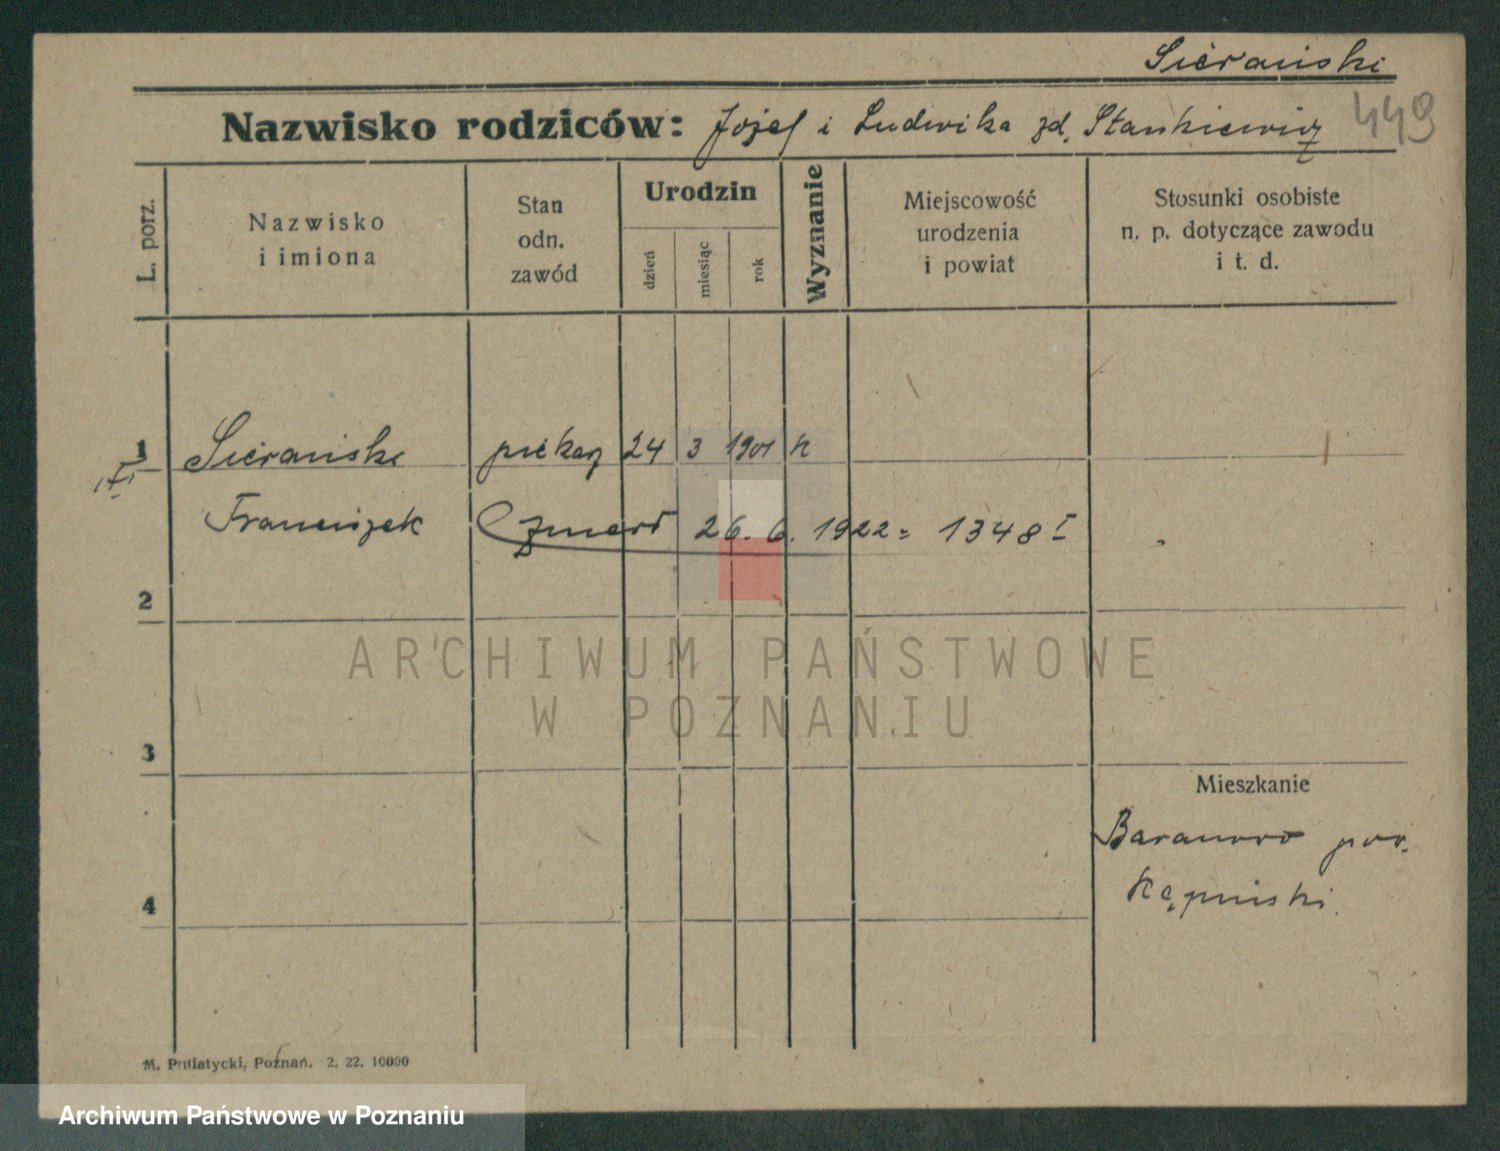 Sierański
Nazwisko rodziców: Józef i Ludwika zd. Stankiewicz 449
L. porz.
Nazwisko
i imiona
Stan
odn.
zawód
Urodzin
dzień
miesiąc
rok
Wyznanie
Miejscowość
urodzenia
i powiat
Stosunki osobiste
n. p. dotyczące zawodu
i t. d.
1 Sierański piekarz 24 3 1901 k
Franciszek zmarł 26. 6. 1922 = 1348 I
2
ARCHIWUM PAŃSTWOWE
W POZNANIU
3
Mieszkanie
Baranowo pow.
Kępiński.
4
M. Putiatycki, Poznań. 2. 22. 10000
Archiwum Państwowe w Poznaniu